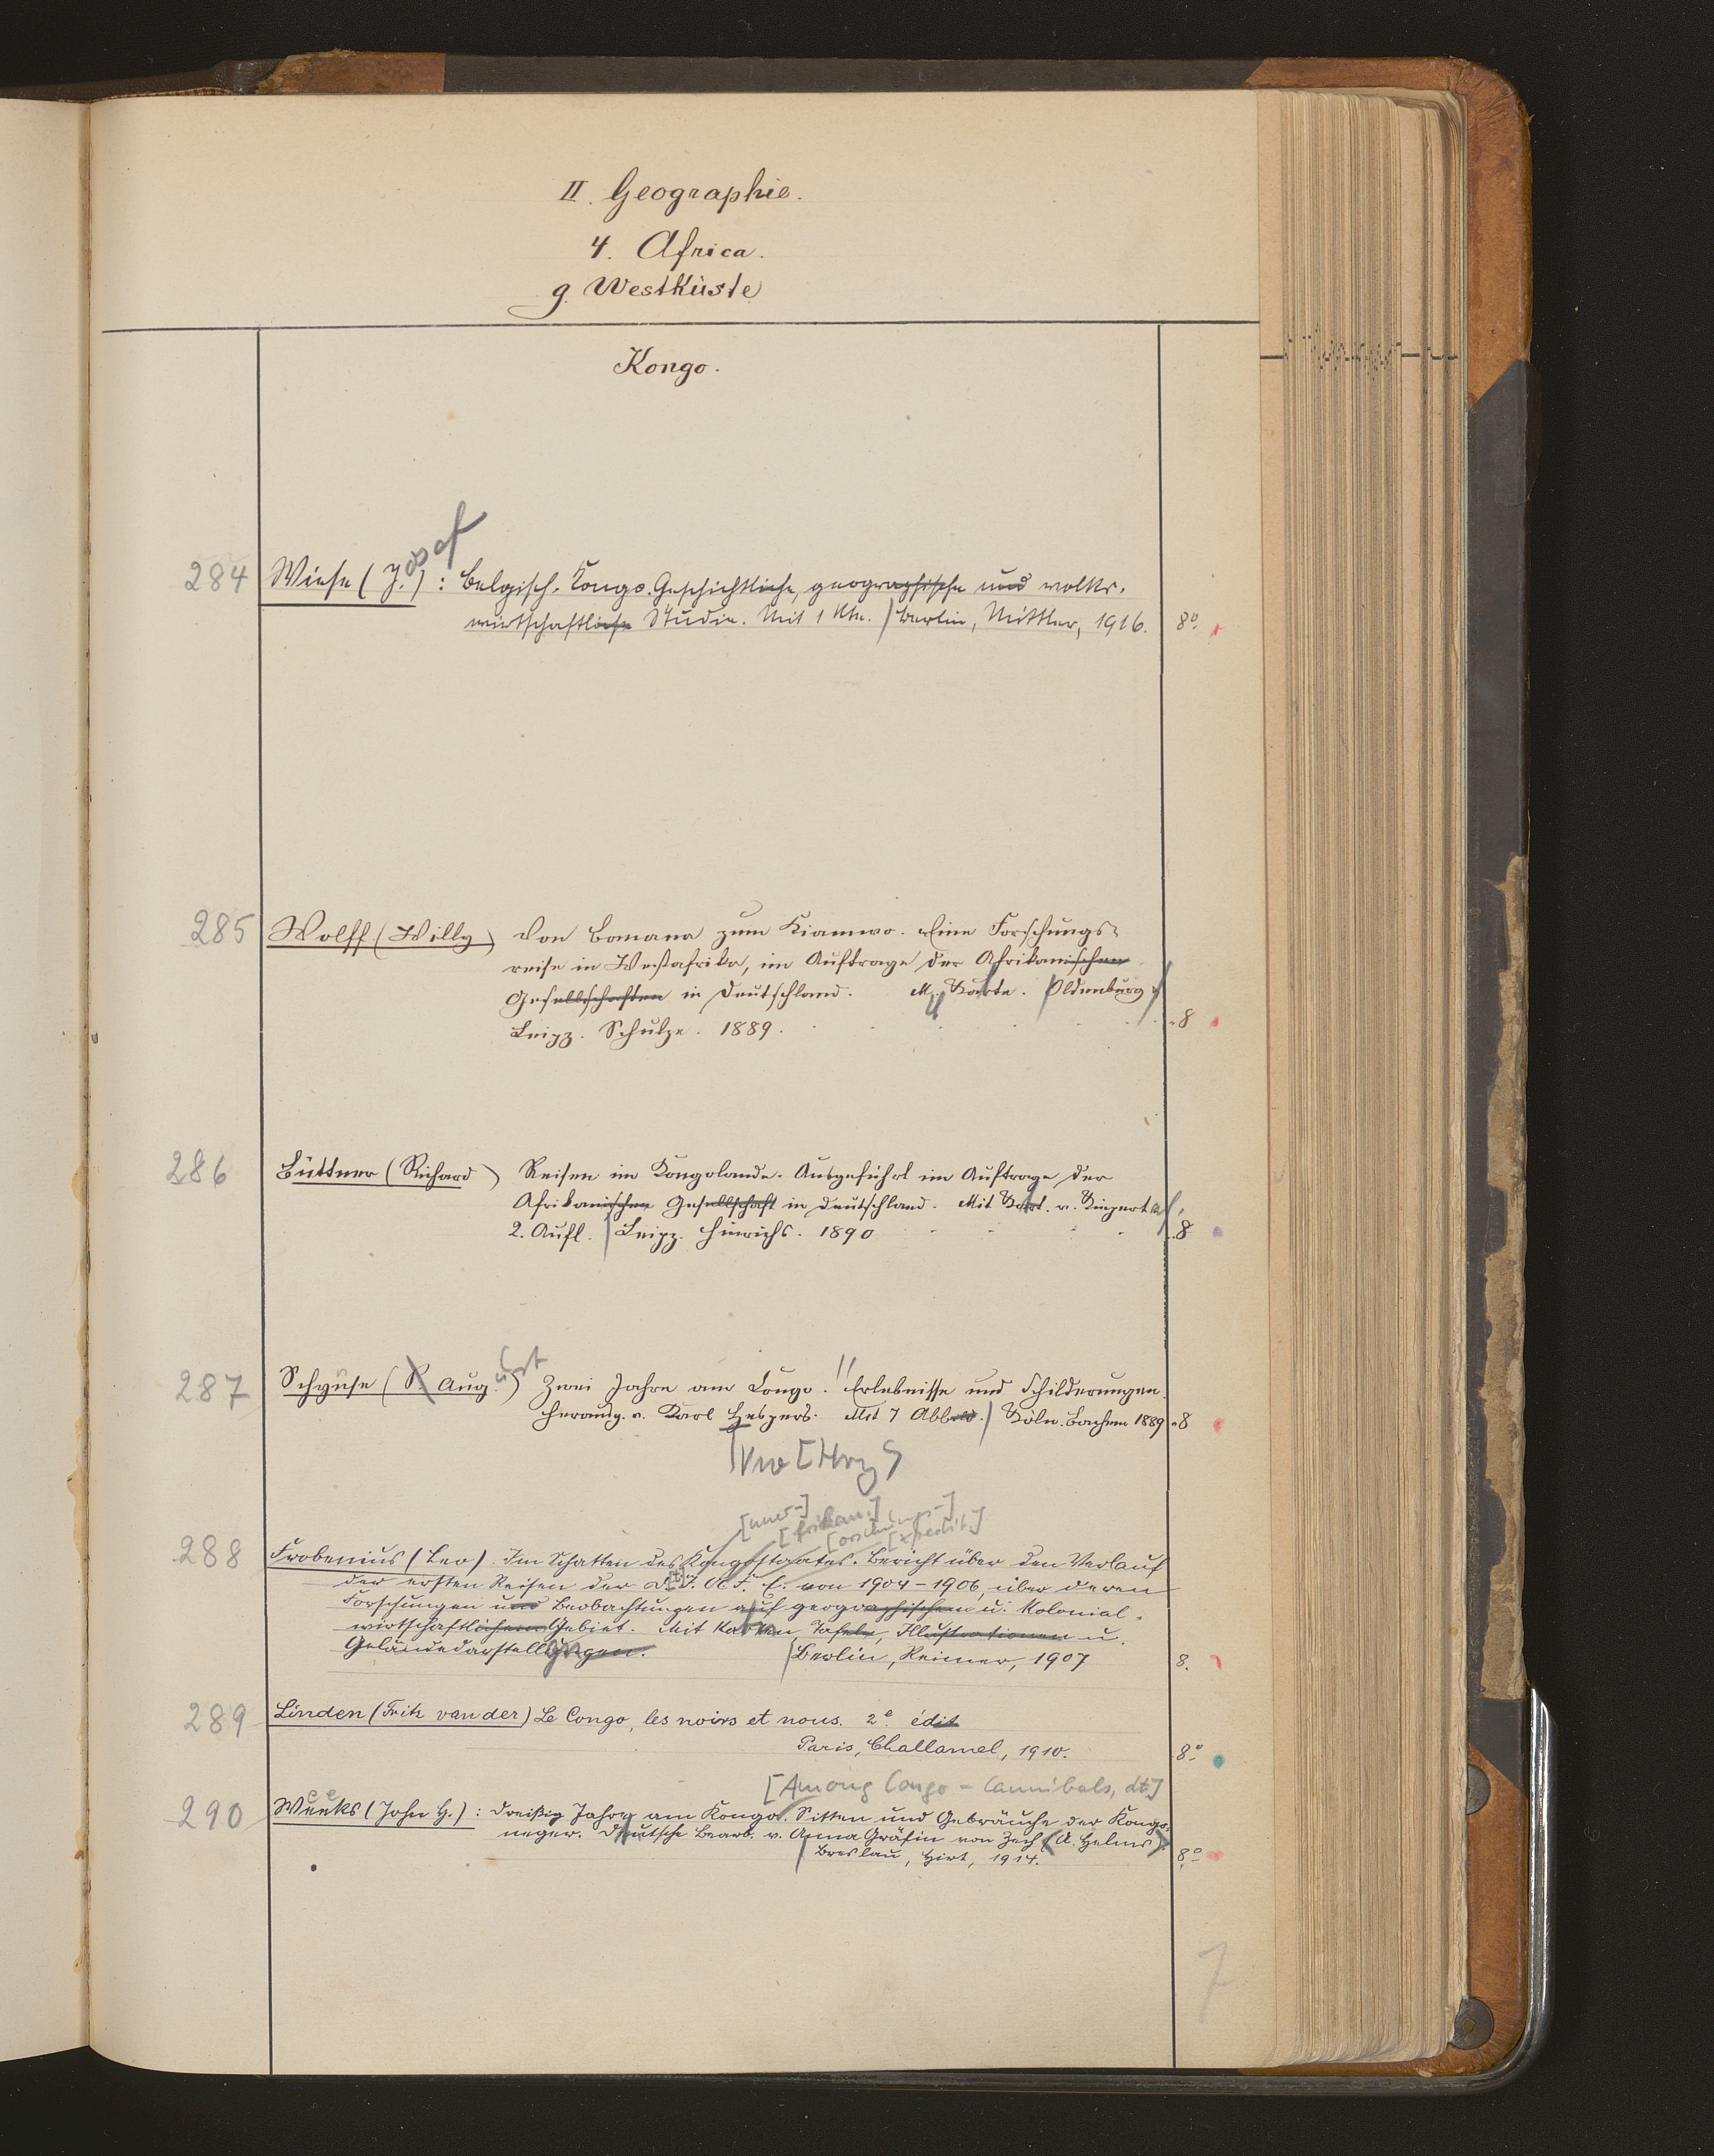 II. Geographie.
4. Africa.
g. Westküste
Kongo.
osef
284 Wiese (J.): Belgisch-Kongo. Geschichtliche, geographische und volks-
wirtschaftliche Studie. Mit 1 Kte. Berlin, Mittler, 1916. 8°.
285 Wolff (Willy) Von Banana zum Kiamwo. Eine Forschungs-
reise in Westafrika, im Auftrage der Afrikanischen
Gesellschaften in Deutschland. M. Karte. Oldenburg u.
Leipz. Schulze. 1889. 8
286 Büttner (Richard) Reisen im Kongolande. Ausgeführt im Auftrage der
Afrikanischen Gesellschaft in Deutschland. Mit Kart. v. Kiepert
2. Aufl. Leipz. Hinrichs. 1890 8
287 Schynse (P. Aug.) Zwei Jahre am Congo. Erlebnisse und Schilderungen.
Herausg. v. Karl Hespers. Mit 7 Abbild. Köln. Bachem 1889 8
[Hrg]
[nner-]
[frikan.]
[orschungs-]
[xpedit.]
288 Frobenius (Leo). Im Schatten des Kongostaates. Bericht über den Verlauf
der ersten Reisen der D. I. A. F. E. von 1904-1906, über deren
Forschungen und Beobachtungen auf geographischem u. kolonial-
wirtschaftlichem Gebiet. Mit Karten, Tafeln, Illustrationen u.
Geländedarstellungen. Berlin, Reimer, 1907 8.
289 Linden (Fritz van der) Le Congo, les noirs et nous. 2e. édit
Paris, Challamel, 1910. 8°.
[Among Congo-Cannibals, dt]
290 Weeks (John H.): Dreißig Jahre am Kongo. Sitten und Gebräuche der Kongo-
neger. Deutsche Bearb. v. Anna Gräfin von Zech (A. Helms).
Breslau, Hirt, 1914. 8°.
7